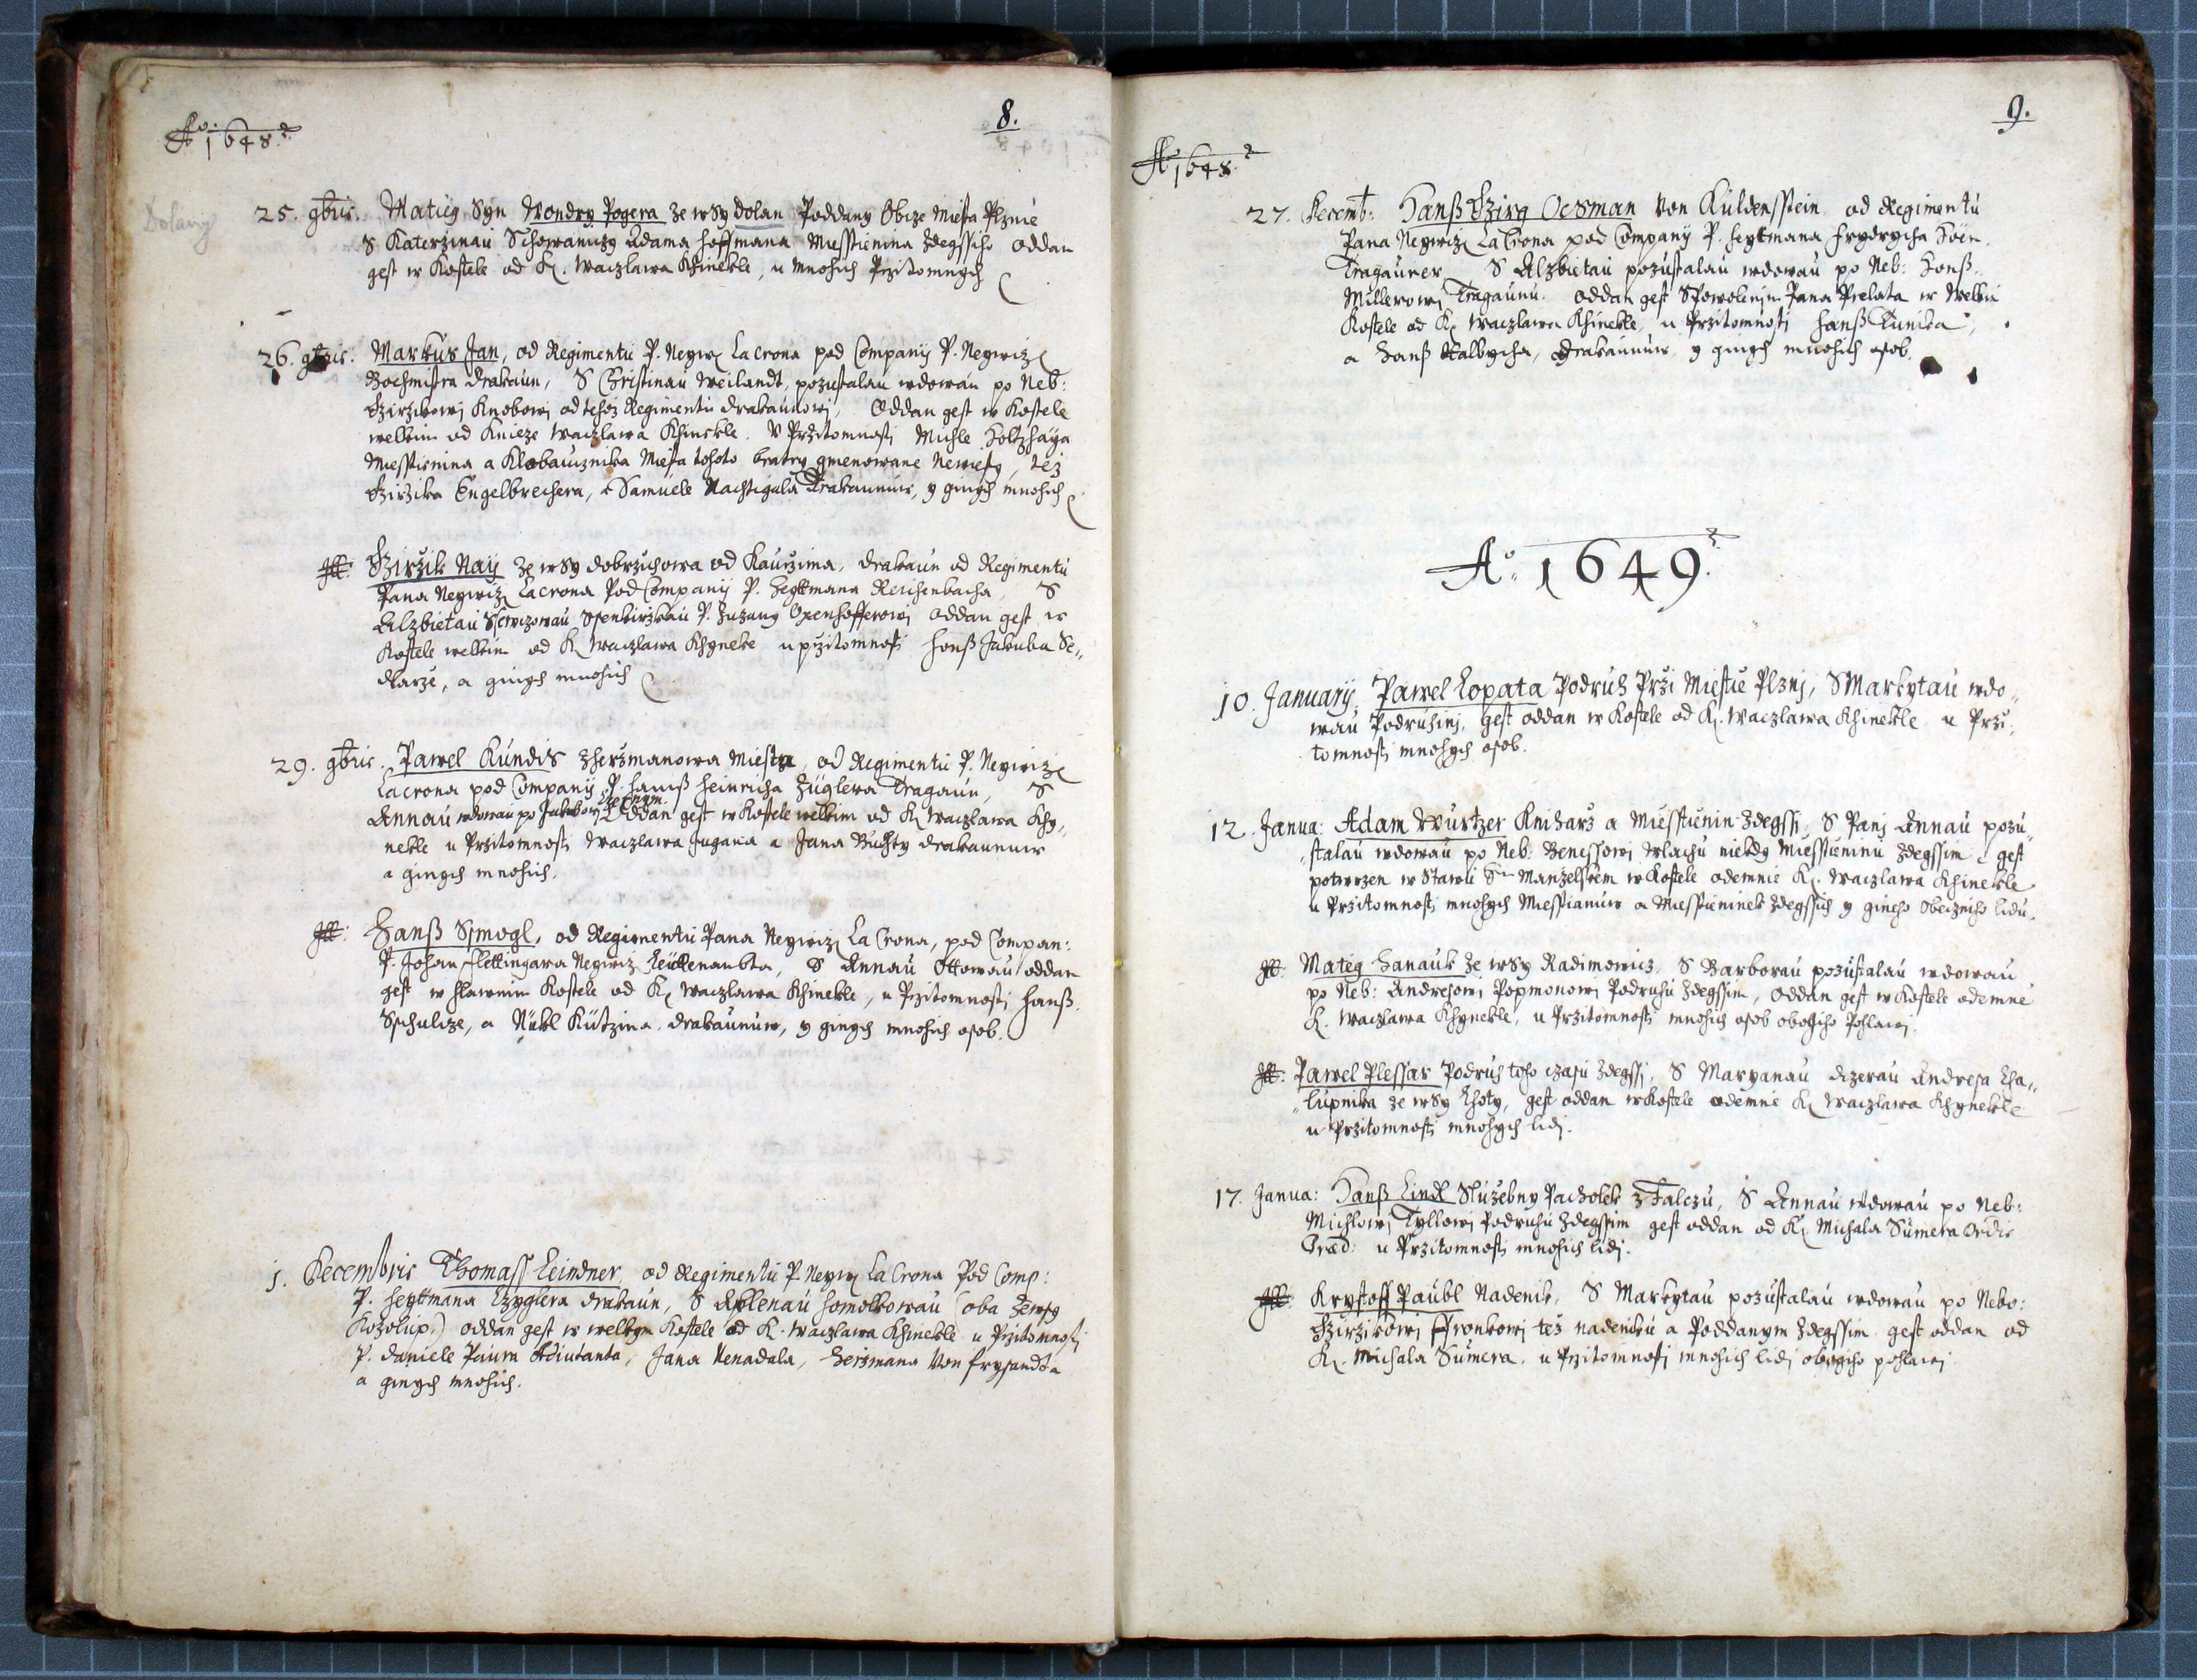 8.
Ao. 1648.
Dolany
25. 9bris. Matieg Syn Wondry Pogera ze wsy dolan Poddany Obcze Miesta Plznie
S Katerzinau Schowaniczy Adama Hoffmana Miesstienina Zdegssiho oddan
gest w Kostele od K. Waczlawa Khinekle, u mnohich Przitomnych
26. 9bris. Markus Jan, od Regimentu P. Neyw. La Crona pod Companij P. Neywiz
Wochmistra drakaun, S Christinau Weilandt, pozustalau wdowau po Neb:
Jirzikowi Knobowi od tehoz Regimentu drakaunowi, Oddan gest w Kostele
welkim od Knieze Waczlawa Khinekle. V Przitomnosti Michle Holtzhaya
Miesstienina a Klobaucznika Miesta tohoto bratry gmenowane Newiesty, téz
Jirzika Engelbrechera, a Samuele Nachtigala Drakaunuw, y ginych mnohich
Itt: Jirzik Naÿ ze wsy dobrzichowa od Kaurzima, drakaun od Regimentu
Pana Neywiz La Crona Pod Companij P. Heyttmana Reichenbacha, S
Alzbietau P. Zuzany Oxenhofferowi oddan gest w
Kostele welkim od K. Waczlawa Khyneke u przitomnosti Hanß Jakuba Se„
dlarze, a ginych mnohich
29. 9bris. Pawel Kundis Zherzmanowa Miestze, od Regimentu P. Neywiz
La crona pod Companij P. Hanß Heinricha Züglera Tragaun, S
Annau wdowau po Jakubowi Oddan gest w Kostele welkim od K. Waczlawa Khy„
nekle u Przitomnosti Waczlawa Jugana a Jana Buchty drakaunuw
a ginych mnohich.
Itt: Hanß Smogl, od Regimentu Pana Neywiz La Crona, pod Compan:
P. Johan Flettingara Neywiz Leittenambta, S Annau Ottowau oddan
gest w hlawnim Kostele od K. Waczlawa Khinekle, u Przitomnosti Hanß
Schulcze, a Nikl Kützina, drakaunuw, y ginych mnohich osob.
1. Decembris Thomass Leindner, od Regimentu P. Neyw La Crona Pod Comp:
P. Heyttmana Czyglera drakaun, S Homolkowau (oba zewsy
Kozolup.) oddan gest w welkym Kostele od K. Waczlawa Khinekle u Przitomnosti
P. Daniele Paura Adiutanta, Jana Nenadala, Herzmana Von Frysandta
a ginych mnohich.
9.
Ao 1648.
27. Decemb: Hanß Jirg Oesman Von Küldensstein, od Regimentu
Pana Neywiz La Crona pod Companij P. Heyttmana Frydrycha Höen.
Tragauner S Alzbietau pozustalau wdowau po Neb: Hanß
Millerowi Tragaunu. Oddan gest Spowolenim Pana Prelata w Welkem
Kostele od K. Waczlawa Khinekle, u Przitomnosti Hanß Kunika,
a Hanß Kalbycha, drakaunuw y ginych mnohich osob.
Ao. 1649.
10. Januarij. Pawel Lopata Podruh Przi Miestie Plzni, S Markytau wdo„
wau Podruhini, gest oddan w Kostele od K. Waczlawa Khinekle u Przi„
tomnosti mnohych osob.
12. Janua: Adam Wurtzer Kniharz a Miesstienin Zdegssi, S Pani Annau pozu„
„stalau wdowau po Neb: Benessowi Wlachu niekdy Miesstieninu Zdegssim gest
potwrzen w Stawu Sm Manzelskem w Kostele odemnie K. Waczlawa Khinekle
u Przitomnosti mnohych Miesstianuw a Miesstieninek Zdegssich y gineho Obeczniho lidu.
Itt: Matieg Hanauk ze wsy Radimowicz, S Barborau pozustalau wdowau
po Neb: Andresowi Popmonowi Podruhu Zdegssim, Oddan gest w Kostele odemne
K. Waczlawa Khynekle, u Przitomnosti mnohich osob obogiho Pohlawi.
Itt: Pawel Plessar Podruh toho czasu Zdegssi, S Maryanau dczerau Andresa Cha„
„lupnika ze wsy Lhoty, gest oddan w Kostele odemnie K. Waczlawa Khynekle
u Przitomnosti mnohych lidi.
17. Janua: Hanß Lindl Sluzebny Pacholek z Falczu, S Annau wdowau po Neb:
Michlowi Tyllowi Podruhu Zdegssim gest oddan od K. Michala Sumera Ordis
Præd: u Przitomnosti mnohich lidi.
Itt: Krystoff Paubl Nadenik, S Markytau pozustalau wdowau po Nebo:
Jirzikowi Fronkowi téz nadeniku a Poddanym Zdegssim gest oddan od
K. Michala Sumera. u Przitomnosti mnohich lidi obogiho pohlawi.